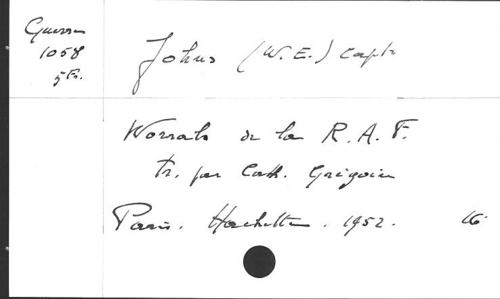 Guerre
1058
5 Fr.
Johns (W.E.) Capt.
Worrals de la R.A.F.
tr. par Cath. Grégoire
Paris. Hachette. 1952. 16